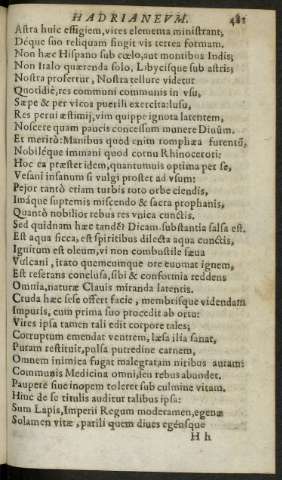 HADRIANEVM. 481
Astra huic effigiem, vires elementa ministrant,
Déque suo reliquam fingit vis terrea formam.
Non hæc Hispano sub cœlo, aut montibus Indis;
Non Italo quærenda solo, Libycisque sub astris;
Nostra profertur, Nostra tellure videtur
Quotidiè, res communi communis in vsu,
Sæpe & per vicos puerili exercita lusu,
Res perui æstimij, vim quippe ignota latentem,
Noscere quam paucis concessum munere Diuûm.
Et meritò: Manibus quod enim romphæa furentũ,
Nobiléque immani quod cornu Rhinoceroti:
Hoc ea præstet idem, quantumuis optima per se,
Vesani insanum si vulgi prostet ad vsum:
Pejor tantò etiam turbis toto orbe ciendis,
Imáque suptemis miscendo & sacra prophanis,
Quantò nobilior rebus res vnica cunctis.
Sed quidnam hæc tandē? Dicam. substantia salsa est.
Est aqua sicca, est spiritibus dilecta aqua cunctis,
Ignitum est oleum, vi non combustile sæua
Vulcani, irato quemcumque ore euomat ignem,
Est reserans conclusa, sibi & conformia reddens
Omnia, naturæ Clauis miranda latentis.
Cruda hæc sese offert facie, membrisque videndam
Impuris, cum prima suo procedit ab ortu:
Vires ipsa tamen tali edit corpore tales;
Corruptum emendat ventrem, læsa ilia sanat,
Putam restituit, pulsa putredine carnem,
Omnem inimica fugat malegratam naribus auram:
Communis Medicina omni, ceu rebus abundet.
Paupere siue inopem toleret sub culmine vitam.
Hinc de se titulis auditur talibus ipsa:
Sum Lapis, Imperii Regum moderamen, egenæ
Solamen vitæ, parili quem diues egénsque
H h